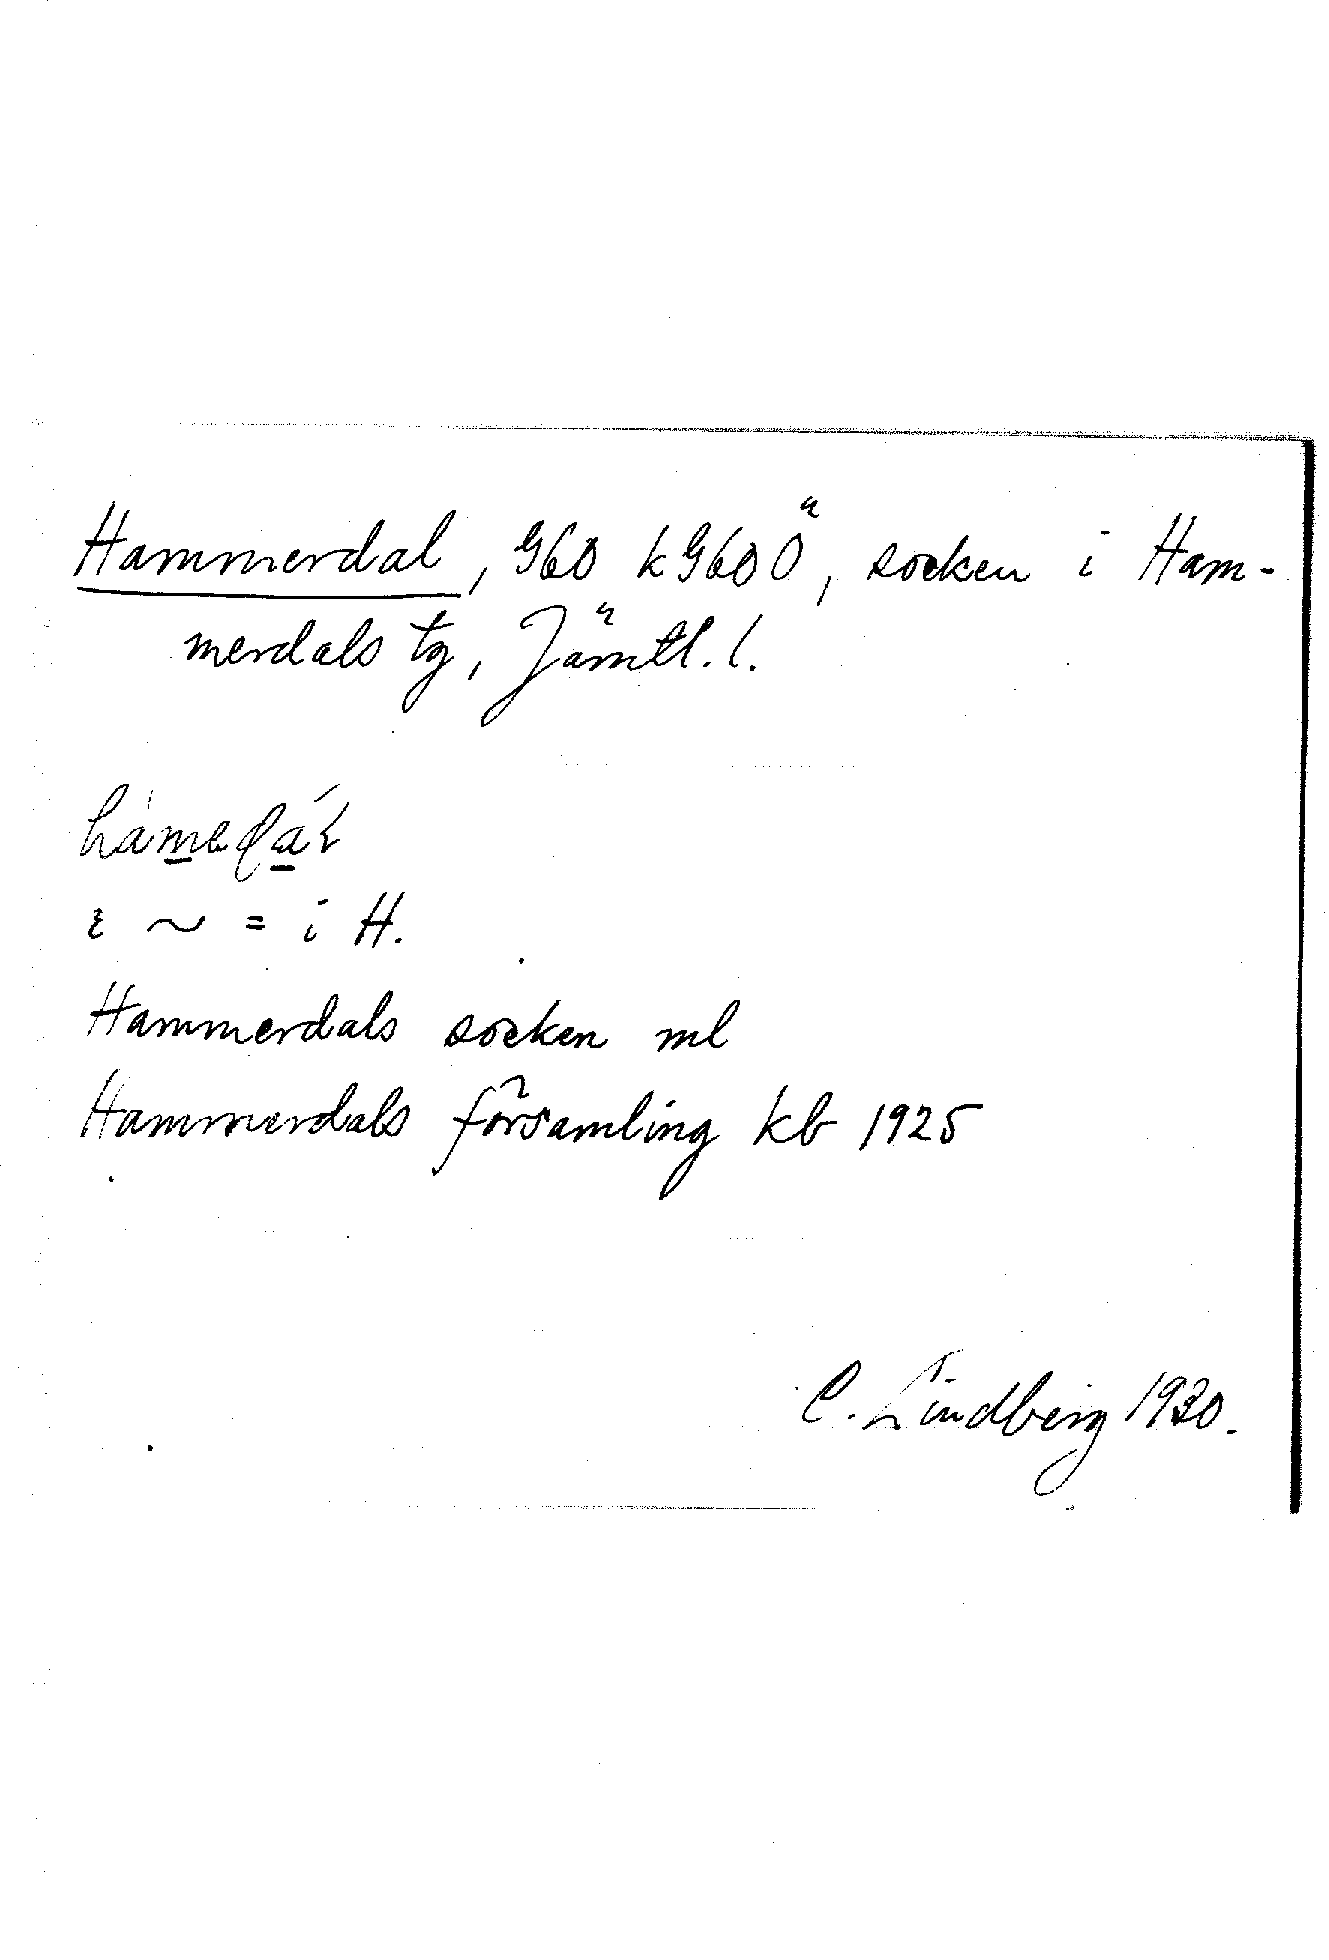 Hammerdal, G60 k G60 Ö, socken i Ham-
merdals tg, Jämtl. l.
i H.
Hammerdals socken ml
Hammerdals församling kb 1925
C. Lindberg 1930.